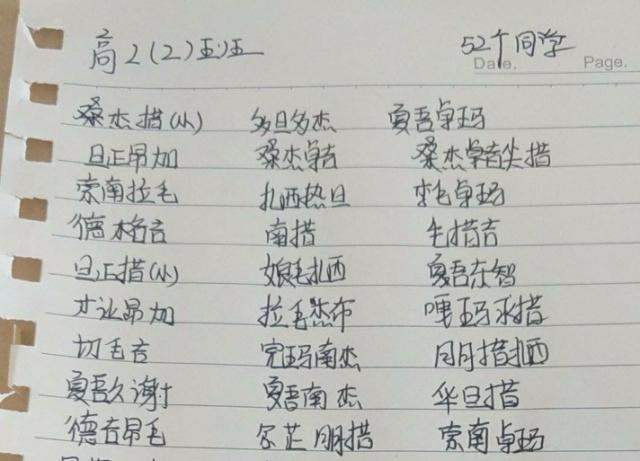 高2(2)班 52个同学
Date. Page.
桑杰措(小) 多旦多杰 夏吾卓玛
旦正昂加 桑杰卓吉 桑杰卓吉尖措
索南拉毛 扎西热旦 卓玛
德格吉 南措 毛措吉
旦正措(小) 娘毛扎西 夏吾东智
才让昂加 拉毛杰布 嘎玛求措
切毛吉 完玛南杰 月月措
夏吾久谢 夏吾南杰 华旦措
德吉昂毛 尕芷月措 索南卓玛